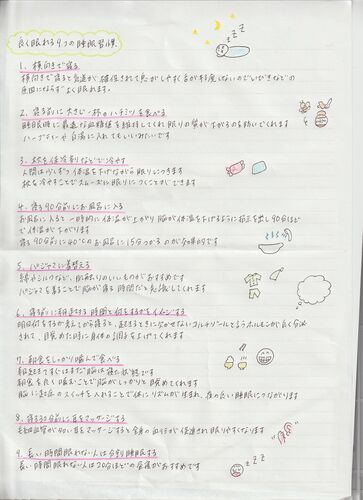 良く眠れる9つの睡眠習慣
1. 横向きで寝る
横向きで寝ると気道が確保されて息がしやすく舌が邪魔しないのでいびきなどの
原因にならず よく眠れます。
2. 寝る前に大さじ一杯のハチミツを食べる
睡眠時に最適な血糖値を維持してくれ眠りの質が上がるのを助けてくれます
ハーブティーや白湯に入れてもいいみたいです
3. 枕を保冷剤などで冷やす
人間は少しずつ体温を下げながら眠りにつきます
枕を冷やすことでスムーズに眠りにつくことができます
4. 寝る90分前にお風呂に入る
お風呂に入ると一時的に体温が上がり脳が体温を下げるように指示を出し90分ほど
で体温が下がります
寝る90分前に40℃のお風呂に15分つかるのが効果的です
5. パジャマに着替える
綿やシルクなど、肌触りのいいものがおすすめです
パジャマを着ることで脳が寝る時間だと認識してくれます
6. 寝る前に朝起きる時間と何をするかイメージする
明日何をするか考えてから寝ると、起きるときに欠かせないコルチゾールというホルモンが良く分泌
されて、目覚めた時に身体の調子を上げてくれます
7. 朝食をしっかり噛んで食べる
朝起きてすぐはまだ脳は寝た状態です
朝食を良く噛むことで脳がしっかりと目覚めてくれます
脳に起床のスイッチを入れることで体にリズムが生まれ、夜の良い睡眠につながります
8. 寝る30分前に耳をマッサージする
毛細血管が多い耳をマッサージすると全身の血行が促進され眠りやすくなります
9. 長い時間眠れない人は分割睡眠する
長い時間眠れない人は20分ほどの昼寝がおすすめです